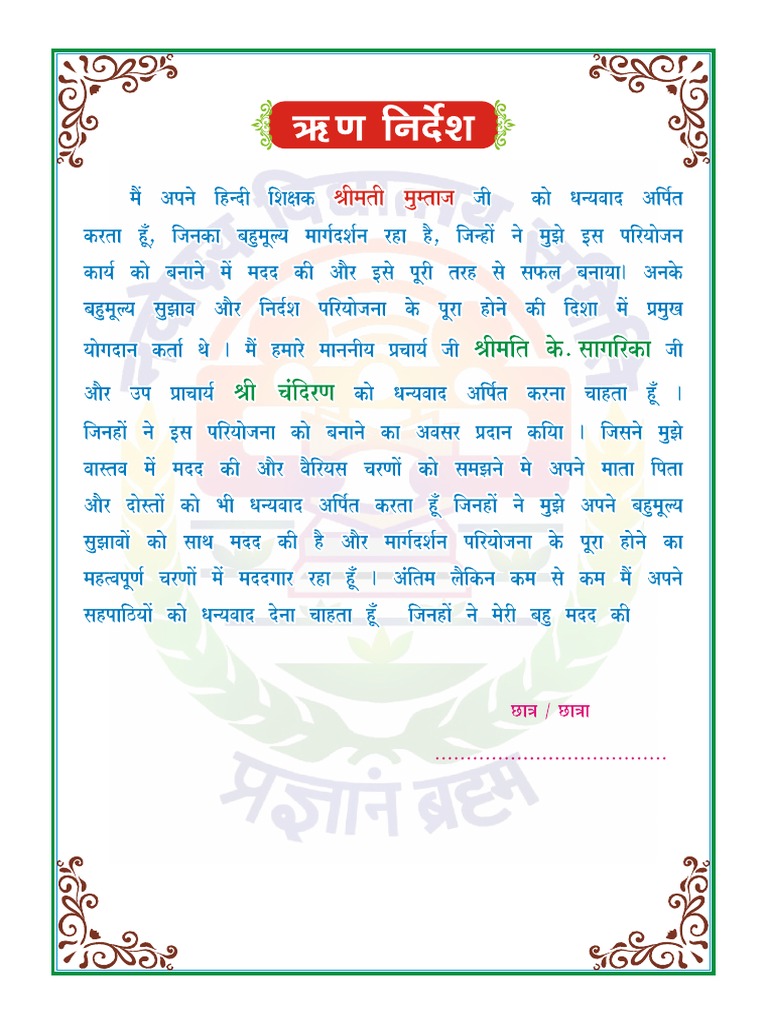 ऋण निर्देश
मैं अपने हिन्दी शिक्षक श्रीमती मुम्ताज जी को धन्यवाद अर्पित
करता हूँ, जिनका बहुमूल्य मार्गदर्शन रहा है, जिन्हों ने मुझे इस परियोजन
कार्य को बनाने में मदद की और इसे पूरी तरह से सफल बनाया। अनके
बहुमूल्य सुझाव और निर्दश परियोजना के पूरा होने की दिशा में प्रमुख
योगदान कर्ता थे । मैं हमारे माननीय प्रचार्य जी श्रीमति के. सागरिका जी
और उप प्राचार्य श्री चंदिरण को धन्यवाद अर्पित करना चाहता हूँ ।
जिनहों ने इस परियोजना को बनाने का अवसर प्रदान कयिा । जिसने मुझे
वास्तव में मदद की और वैरियस चरणों को समझने मे अपने माता पिता
और दोस्तों को भी धन्यवाद अर्पित करता हूँ जिनहों ने मुझे अपने बहुमूल्य
सुझावों को साथ मदद की है और मार्गदर्शन परियोजना के पूरा होने का
महत्वपूर्ण चरणों में मददगार रहा हूँ । अंतिम लैकिन कम से कम मैं अपने
सहपाठियों को धन्यवाद देना चाहता हूँ जिनहों ने मेरी बहु मदद की
छात्र / छात्रा
नवोदय विद्यालय समिति
प्रज्ञानं ब्रह्म